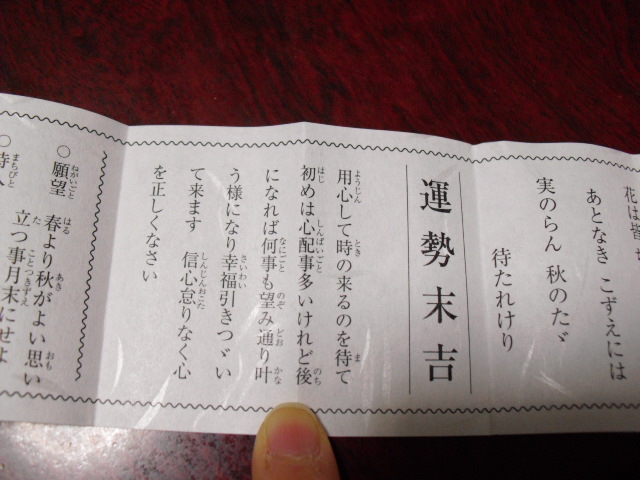 花は皆
あとなき こずえには
実のらん 秋のたゞ
待たれけり
運勢末吉
用心して時の来るのを待て
初めは心配事多いけれど後
になれば何事も望み通り叶
う様になり幸福引きつゞい
て来ます 信心怠りなく心
を正しくなさい
○願望 春より秋がよい思い
立つ事月末にせよ
○待人